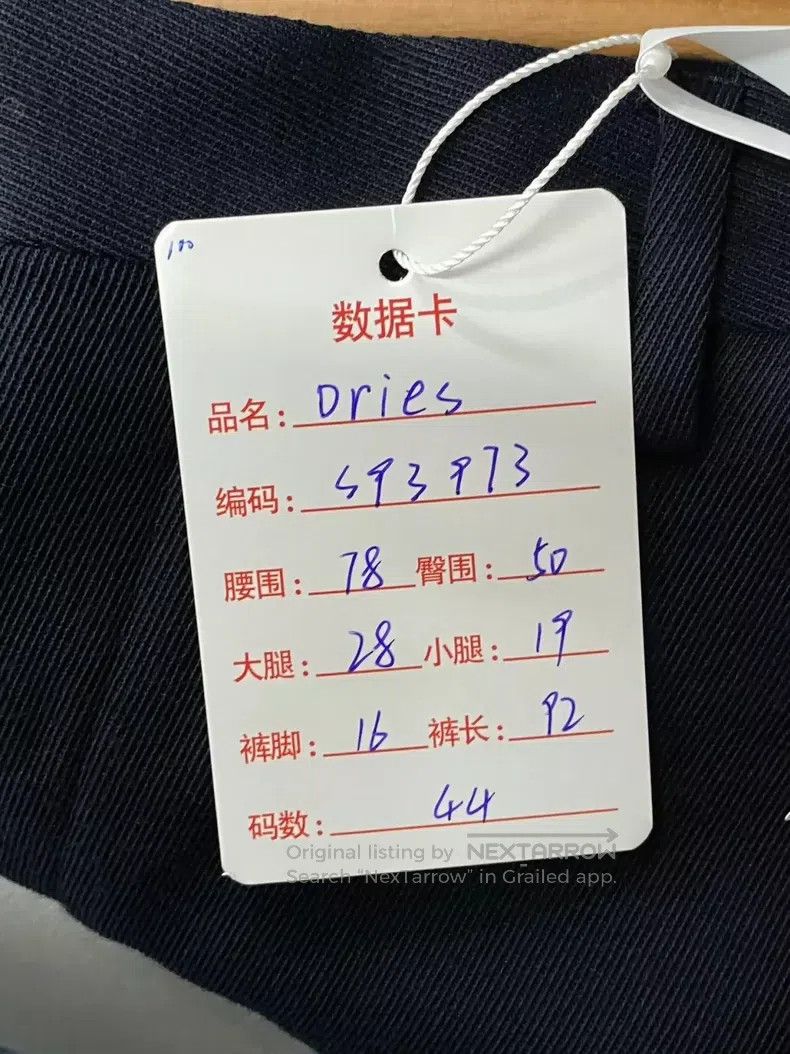 100
数据卡
品名: Dries
编码: S93973
腰围: 78 臀围: 50
大腿: 28 小腿: 19
裤脚: 16 裤长: 92
码数: 44
Original listing by NEXTARROW
Search "NexTarrow" in Grailed app.